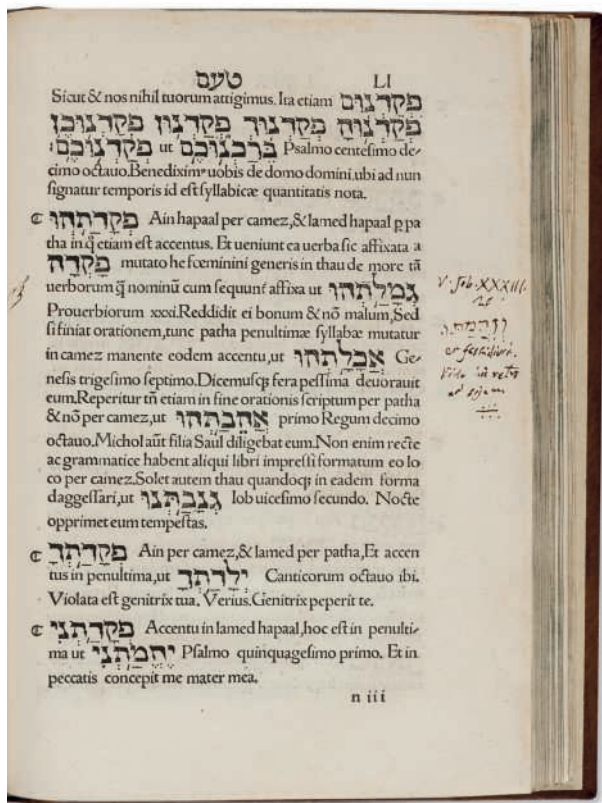 טעם LI
Sicut & nos nihil tuorum attigimus. Ita etiam פְקַדְנֻוּם
פְקַדְנֻוּהָ פְקַדְנֻוּךָ פְקַדְנֻוּן פְקַדְנוּכֶן
פְקַדְנוּכֶם: ut בֵּרַכְנוּכֶם Psalmo centesimo de-
cimo octauo. Benediximꝰ uobis de domo domini. ubi ad nun
signatur temporis id est syllabicæ quantitatis nota.
☾ פְקָדַתְהוּ Ain hapaal per camez, & lamed hapaal ꝑ pa
tha in q̃ etiam est accentus. Et ueniunt ea uerba sic affixata a
פָקְדָה mutato he fœminini generis in thau de more tã
uerborum q̃ nominũ cum sequunt̃ affixa ut גְמָלַתְהוּ
Prouerbiorum xxxi. Reddidit ei bonum & nõ malum, Sed
si finiat orationem, tunc patha penultimæ syllabæ mutatur
in camez manente eodem accentu, ut אֲכָלָתְהוּ Ge-
nesis trigesimo septimo. Dicemusq; fera pessima deuorauit
eum. Reperitur tñ etiam in fine orationis scriptum per patha
& nõ per camez, ut אֲהֵבַתְהוּ primo Regum decimo
octauo. Michol aũt filia Saul diligebat eum. Non enim recte
ac grammatice habent aliqui libri impressi formatum eo lo
co per camez. Solet autem thau quandoq; in eadem forma
daggessari, ut גְנָבַתּוּ Iob uicesimo secundo. Nocte
opprimet eum tempestas.
☾ פְקָדַתְךָ Ain per camez, & lamed per patha, Et accen
tus in penultima, ut יְלָדַתְךָ Canticorum octauo ibi.
Violata est genitrix tua. Verius. Genitrix peperit te.
☾ פְקָדַתְנִי Accentu in lamed hapaal, hoc est in penulti-
ma ut יֶחֱמַתְנִי Psalmo quinquagesimo primo. Et in
peccatis concepit me mater mea.
n iii
V. Iob. XXXIII.